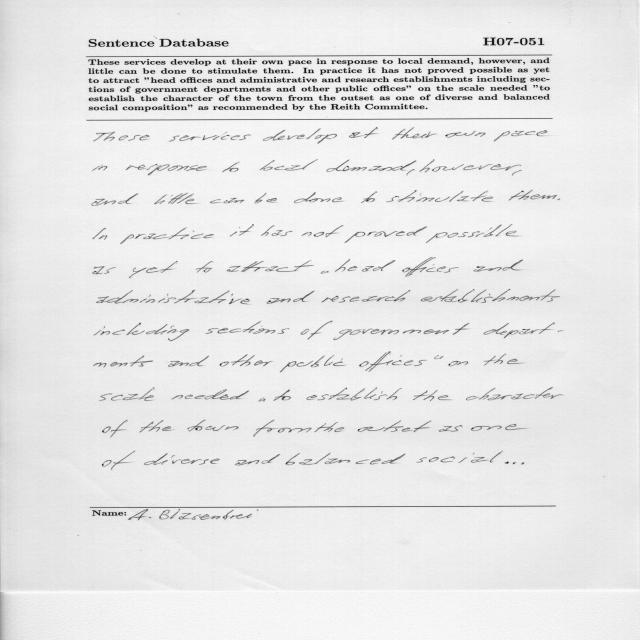 Sentence Database H07-051
These services develop at their own pace in response to local demand, however, and
little can be done to stimulate them. In practice it has not proved possible as yet
to attract "head offices and administrative and research establishments including sec-
tions of government departments and other public offices" on the scale needed "to
establish the character of the town from the outset as one of diverse and balanced
social composition" as recommended by the Reith Committee.
These services develop at their own pace
in response to local demand, however,
and little can be done to stimulate them.
In practice it has not proved possible
as yet to attract „head offices and
administrative and research establishments
including sections of government depart-
ments and other public offices“ on the
scale needed „to establish the character
of the town from the outset as one
of diverse and balanced social...
Name: A.